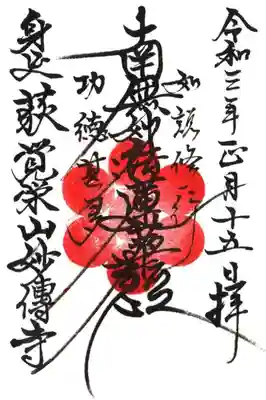 令和三年正月十五日拝
如説修行
南無妙法蓮華経
功徳甚多
身延 覚栄山妙傳寺